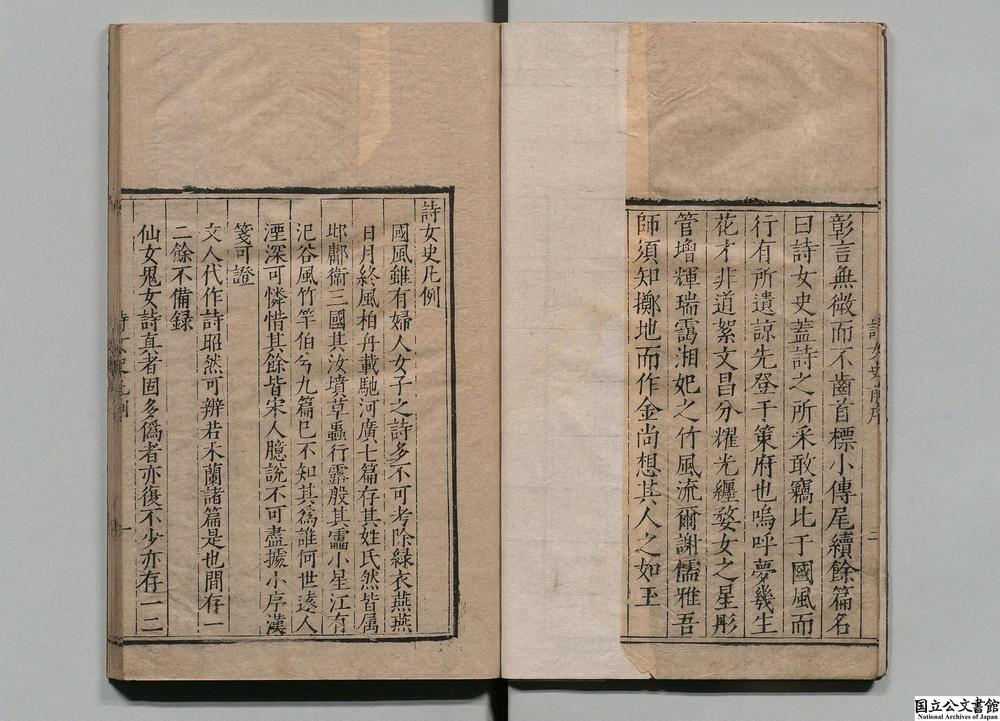 彰言無微而不齒首標小傳尾續餘篇名
曰詩女史蓋詩之所采敢竊比于國風而
行有所遺諒先登于策府也嗚呼夢幾生
花才非道絮文昌分耀光纏婺女之星彤
管增輝瑞靄湘妃之竹風流爾謝儒雅吾
師須知擲地而作金尚想其人之如玉
詩女史凡例
國風雖有婦人女子之詩多不可考除緑衣燕燕
日月終風柏舟載馳河廣七篇存其姓氏然皆属
邶鄘衛三國其汝墳草蟲行露殷其靁小星江有
汜谷風竹竿伯兮九篇已不知其爲誰何世遠人
湮深可憐惜其餘皆宋人臆說不可盡據小序漢
箋可證
文人代作詩昭然可辨若木蘭諸篇是也間存一
二餘不備録
仙女鬼女詩真者固多僞者亦復不少亦存一二
一
国立公文書館
National Archives of Japan